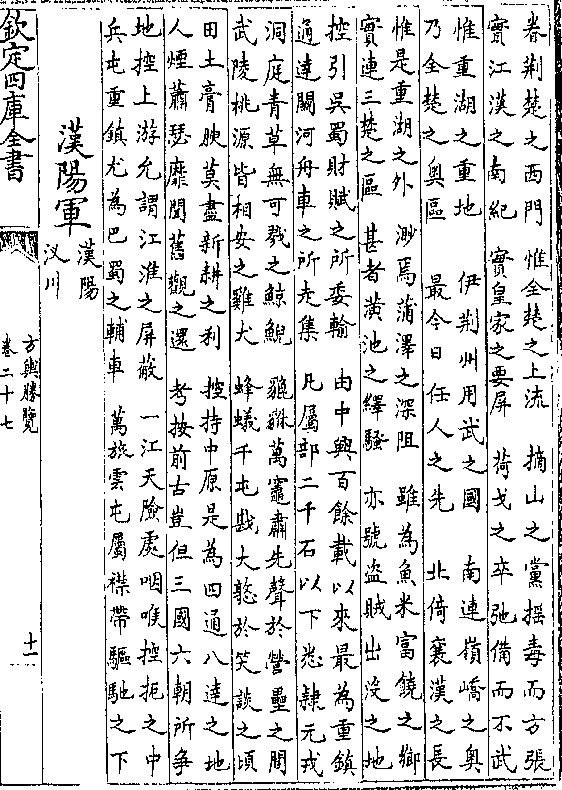 眷荆楚之西門　惟全楚之上流　摘山之黨揺毒而方張
實江漢之南紀　實皇家之要屏　荷戈之卒弛備而不武
惟重湖之重地　伊荆州用武之國　南連嶺嶠之奥
乃全楚之奥區　最今日任人之先　北倚襄漢之長
惟是重湖之外　渺焉蒲澤之深阻　雖為魚米富饒之鄉
實連三楚之區　甚者潢池之繹騷　亦號盜賊出没之地
控引吳蜀財賦之所委輸　由中興百餘載以來最為重鎮
通達關河舟車之所走集　凡屬部二千石以下悉隸元戎
洞庭青草無可戮之鯨鯢　貔貅萬竈肅先聲於營壘之間
武陵桃源皆相安之雞犬　蜂蟻千屯戡大憝於笑談之頃
田土膏腴莫盡新耕之利　控持中原是為四通八達之地
人煙蕭瑟靡聞舊觀之還　考按前古豈但三國六朝所爭
地控上游允謂江淮之屏蔽　一江天險處咽喉控扼之中
兵屯重鎮尤為巴蜀之輔車　萬旅雲屯屬襟帶驅馳之下
漢陽軍　漢陽　汊川
欽定四庫全書
方輿勝覽
卷二十七
十一